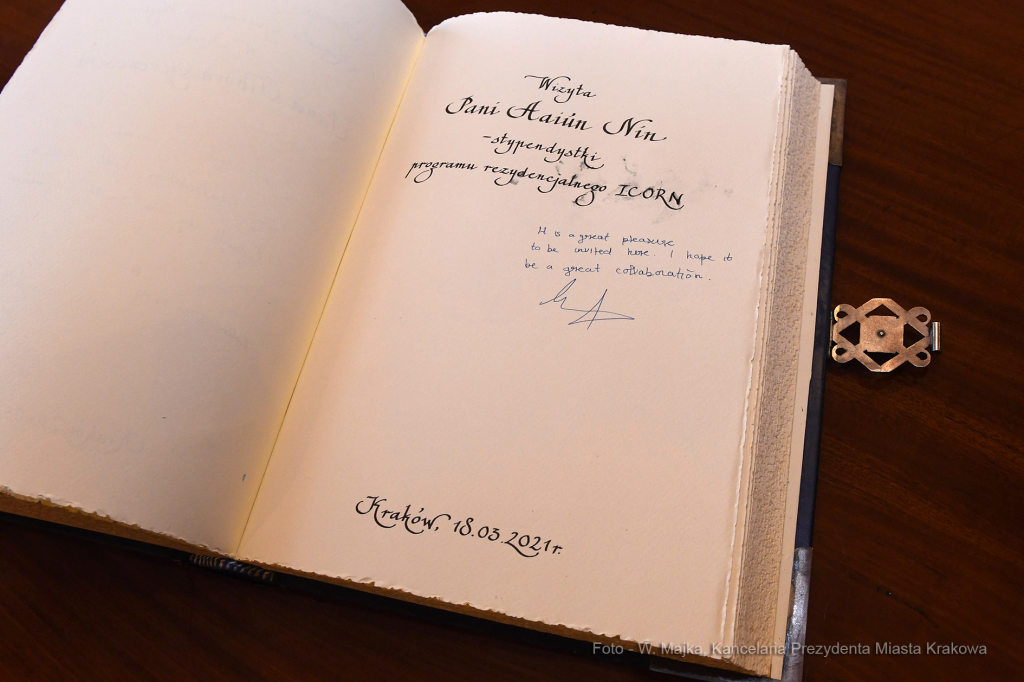 Wizyta
Pani Aaiún Nin
-stypendystki
programu rezydencjalnego ICORN
It is a great pleasure
to be invited here. I hope it
be a great collaboration.
Kraków, 18.03.2021r.
Foto - W. Majka, Kancelaria Prezydenta Miasta Krakowa